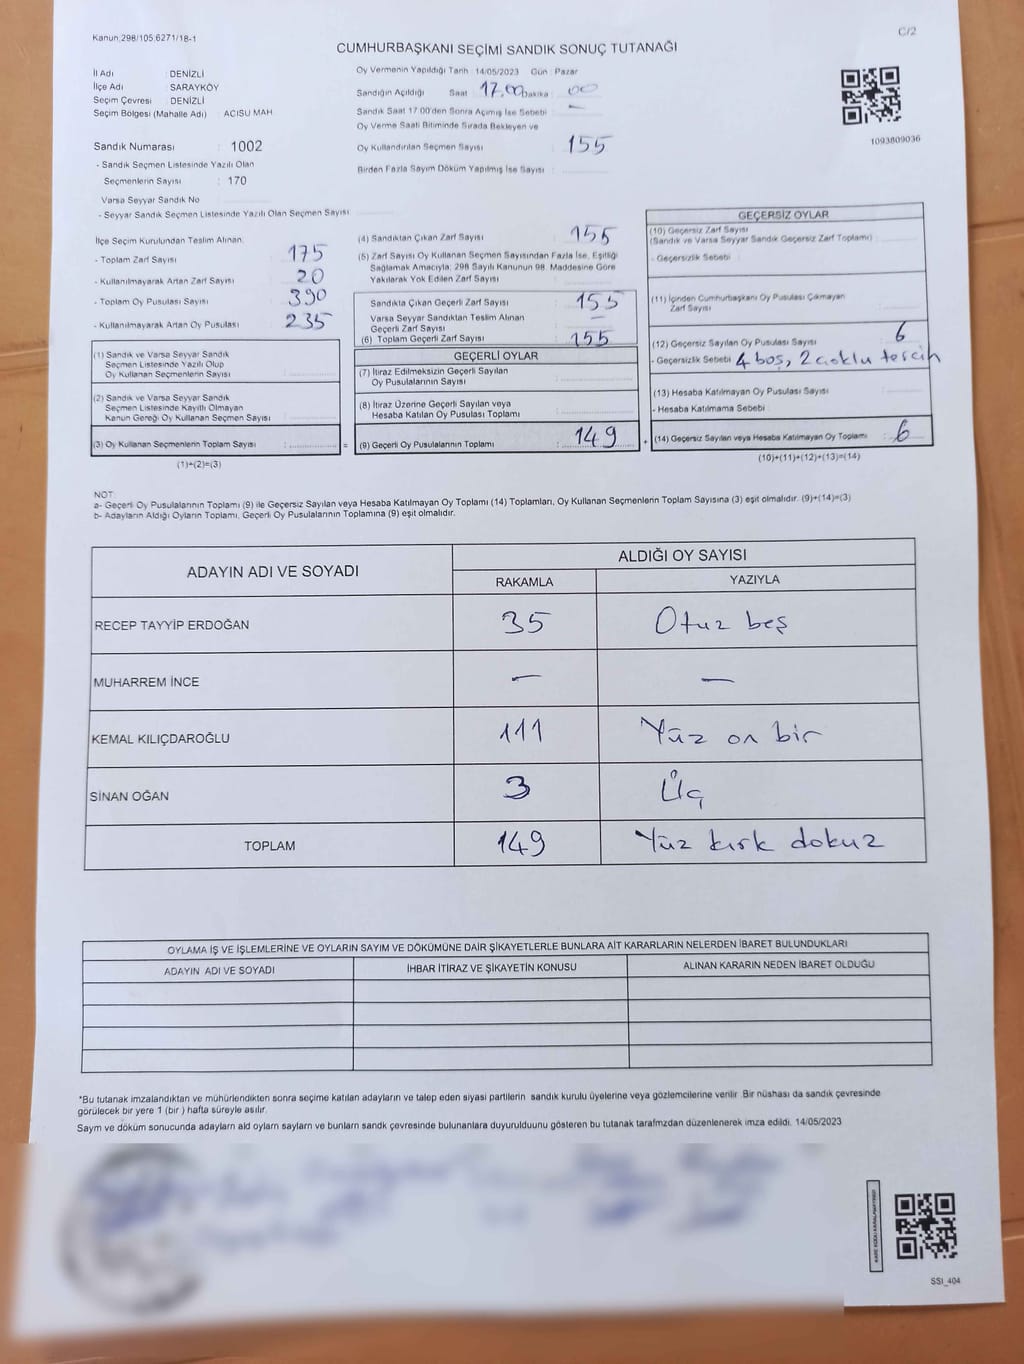 Kanun;298/105;6271/18-1
C/2
CUMHURBAŞKANI SEÇİMİ SANDIK SONUÇ TUTANAĞI
İl Adı : DENİZLİ
İlçe Adı : SARAYKÖY
Seçim Çevresi : DENİZLİ
Seçim Bölgesi (Mahalle Adı) : ACISU MAH.
Sandık Numarası : 1002
- Sandık Seçmen Listesinde Yazılı Olan
Seçmenlerin Sayısı : 170
Varsa Seyyar Sandık No
- Seyyar Sandık Seçmen Listesinde Yazılı Olan Seçmen Sayısı
Oy Vermenin Yapıldığı Tarih : 14/05/2023 Gün : Pazar
Sandığın Açıldığı Saat 17.00 Dakika : 00
Sandık Saat 17:00'den Sonra Açılmış İse Sebebi : —
Oy Verme Saati Bitiminde Sırada Bekleyen ve
Oy Kullandırılan Seçmen Sayısı : 155
Birden Fazla Sayım Döküm Yapılmış İse Sayısı :
1093809036
İlçe Seçim Kurulundan Teslim Alınan;
- Toplam Zarf Sayısı : 175
- Kullanılmayarak Artan Zarf Sayısı : 20
- Toplam Oy Pusulası Sayısı : 390
- Kullanılmayarak Artan Oy Pusulası : 235
(1) Sandık ve Varsa Seyyar Sandık
Seçmen Listesinde Yazılı Olup
Oy Kullanan Seçmenlerin Sayısı :
(2) Sandık ve Varsa Seyyar Sandık
Seçmen Listesinde Kayıtlı Olmayan
Kanun Gereği Oy Kullanan Seçmen Sayısı :
(3) Oy Kullanan Seçmenlerin Toplam Sayısı : =
(1)+(2)=(3)
(4) Sandıktan Çıkan Zarf Sayısı : 155
(5) Zarf Sayısı Oy Kullanan Seçmen Sayısından Fazla İse, Eşitliği
Sağlamak Amacıyla; 298 Sayılı Kanunun 98. Maddesine Göre
Yakılarak Yok Edilen Zarf Sayısı :
Sandıkta Çıkan Geçerli Zarf Sayısı : 155
Varsa Seyyar Sandıktan Teslim Alınan
Geçerli Zarf Sayısı : —
(6) Toplam Geçerli Zarf Sayısı : 155
GEÇERLİ OYLAR
(7) İtiraz Edilmeksizin Geçerli Sayılan
Oy Pusulalarının Sayısı :
(8) İtiraz Üzerine Geçerli Sayılan veya
Hesaba Katılan Oy Pusulası Toplamı :
(9) Geçerli Oy Pusulalarının Toplamı : 149 +
GEÇERSİZ OYLAR
(10) Geçersiz Zarf Sayısı
(Sandık ve Varsa Seyyar Sandık Geçersiz Zarf Toplamı) :
- Geçersizlik Sebebi :
(11) İçinden Cumhurbaşkanı Oy Pusulası Çıkmayan
Zarf Sayısı :
(12) Geçersiz Sayılan Oy Pusulası Sayısı : 6
- Geçersizlik Sebebi 4 boş, 2 çoklu tercih
(13) Hesaba Katılmayan Oy Pusulası Sayısı :
- Hesaba Katılmama Sebebi
(14) Geçersiz Sayılan veya Hesaba Katılmayan Oy Toplamı : 6
(10)+(11)+(12)+(13)=(14)
NOT:
a- Geçerli Oy Pusulalarının Toplamı (9) ile Geçersiz Sayılan veya Hesaba Katılmayan Oy Toplamı (14) Toplamları, Oy Kullanan Seçmenlerin Toplam Sayısına (3) eşit olmalıdır. (9)+(14)=(3)
b- Adayların Aldığı Oyların Toplamı, Geçerli Oy Pusulalarının Toplamına (9) eşit olmalıdır.
ADAYIN ADI VE SOYADI ALDIĞI OY SAYISI
RAKAMLA YAZIYLA
RECEP TAYYİP ERDOĞAN 35 Otuz beş
MUHARREM İNCE — —
KEMAL KILIÇDAROĞLU 111 Yüz on bir
SİNAN OĞAN 3 Üç
TOPLAM 149 Yüz kırk dokuz
OYLAMA İŞ VE İŞLEMLERİNE VE OYLARIN SAYIM VE DÖKÜMÜNE DAİR ŞİKAYETLERLE BUNLARA AİT KARARLARIN NELERDEN İBARET BULUNDUKLARI
ADAYIN ADI VE SOYADI İHBAR İTİRAZ VE ŞİKAYETİN KONUSU ALINAN KARARIN NEDEN İBARET OLDUĞU
*Bu tutanak imzalandıktan ve mühürlendikten sonra seçime katılan adayların ve talep eden siyasi partilerin sandık kurulu üyelerine veya gözlemcilerine verilir. Bir nüshası da sandık çevresinde
görülecek bir yere 1 (bir ) hafta süreyle asılır.
Sayım ve döküm sonucunda adayların ald oyların sayların ve bunların sandk çevresinde bulunanlara duyurulduunu gösteren bu tutanak tarafmzdan düzenlenerek imza edildi. 14/05/2023
SSI_404